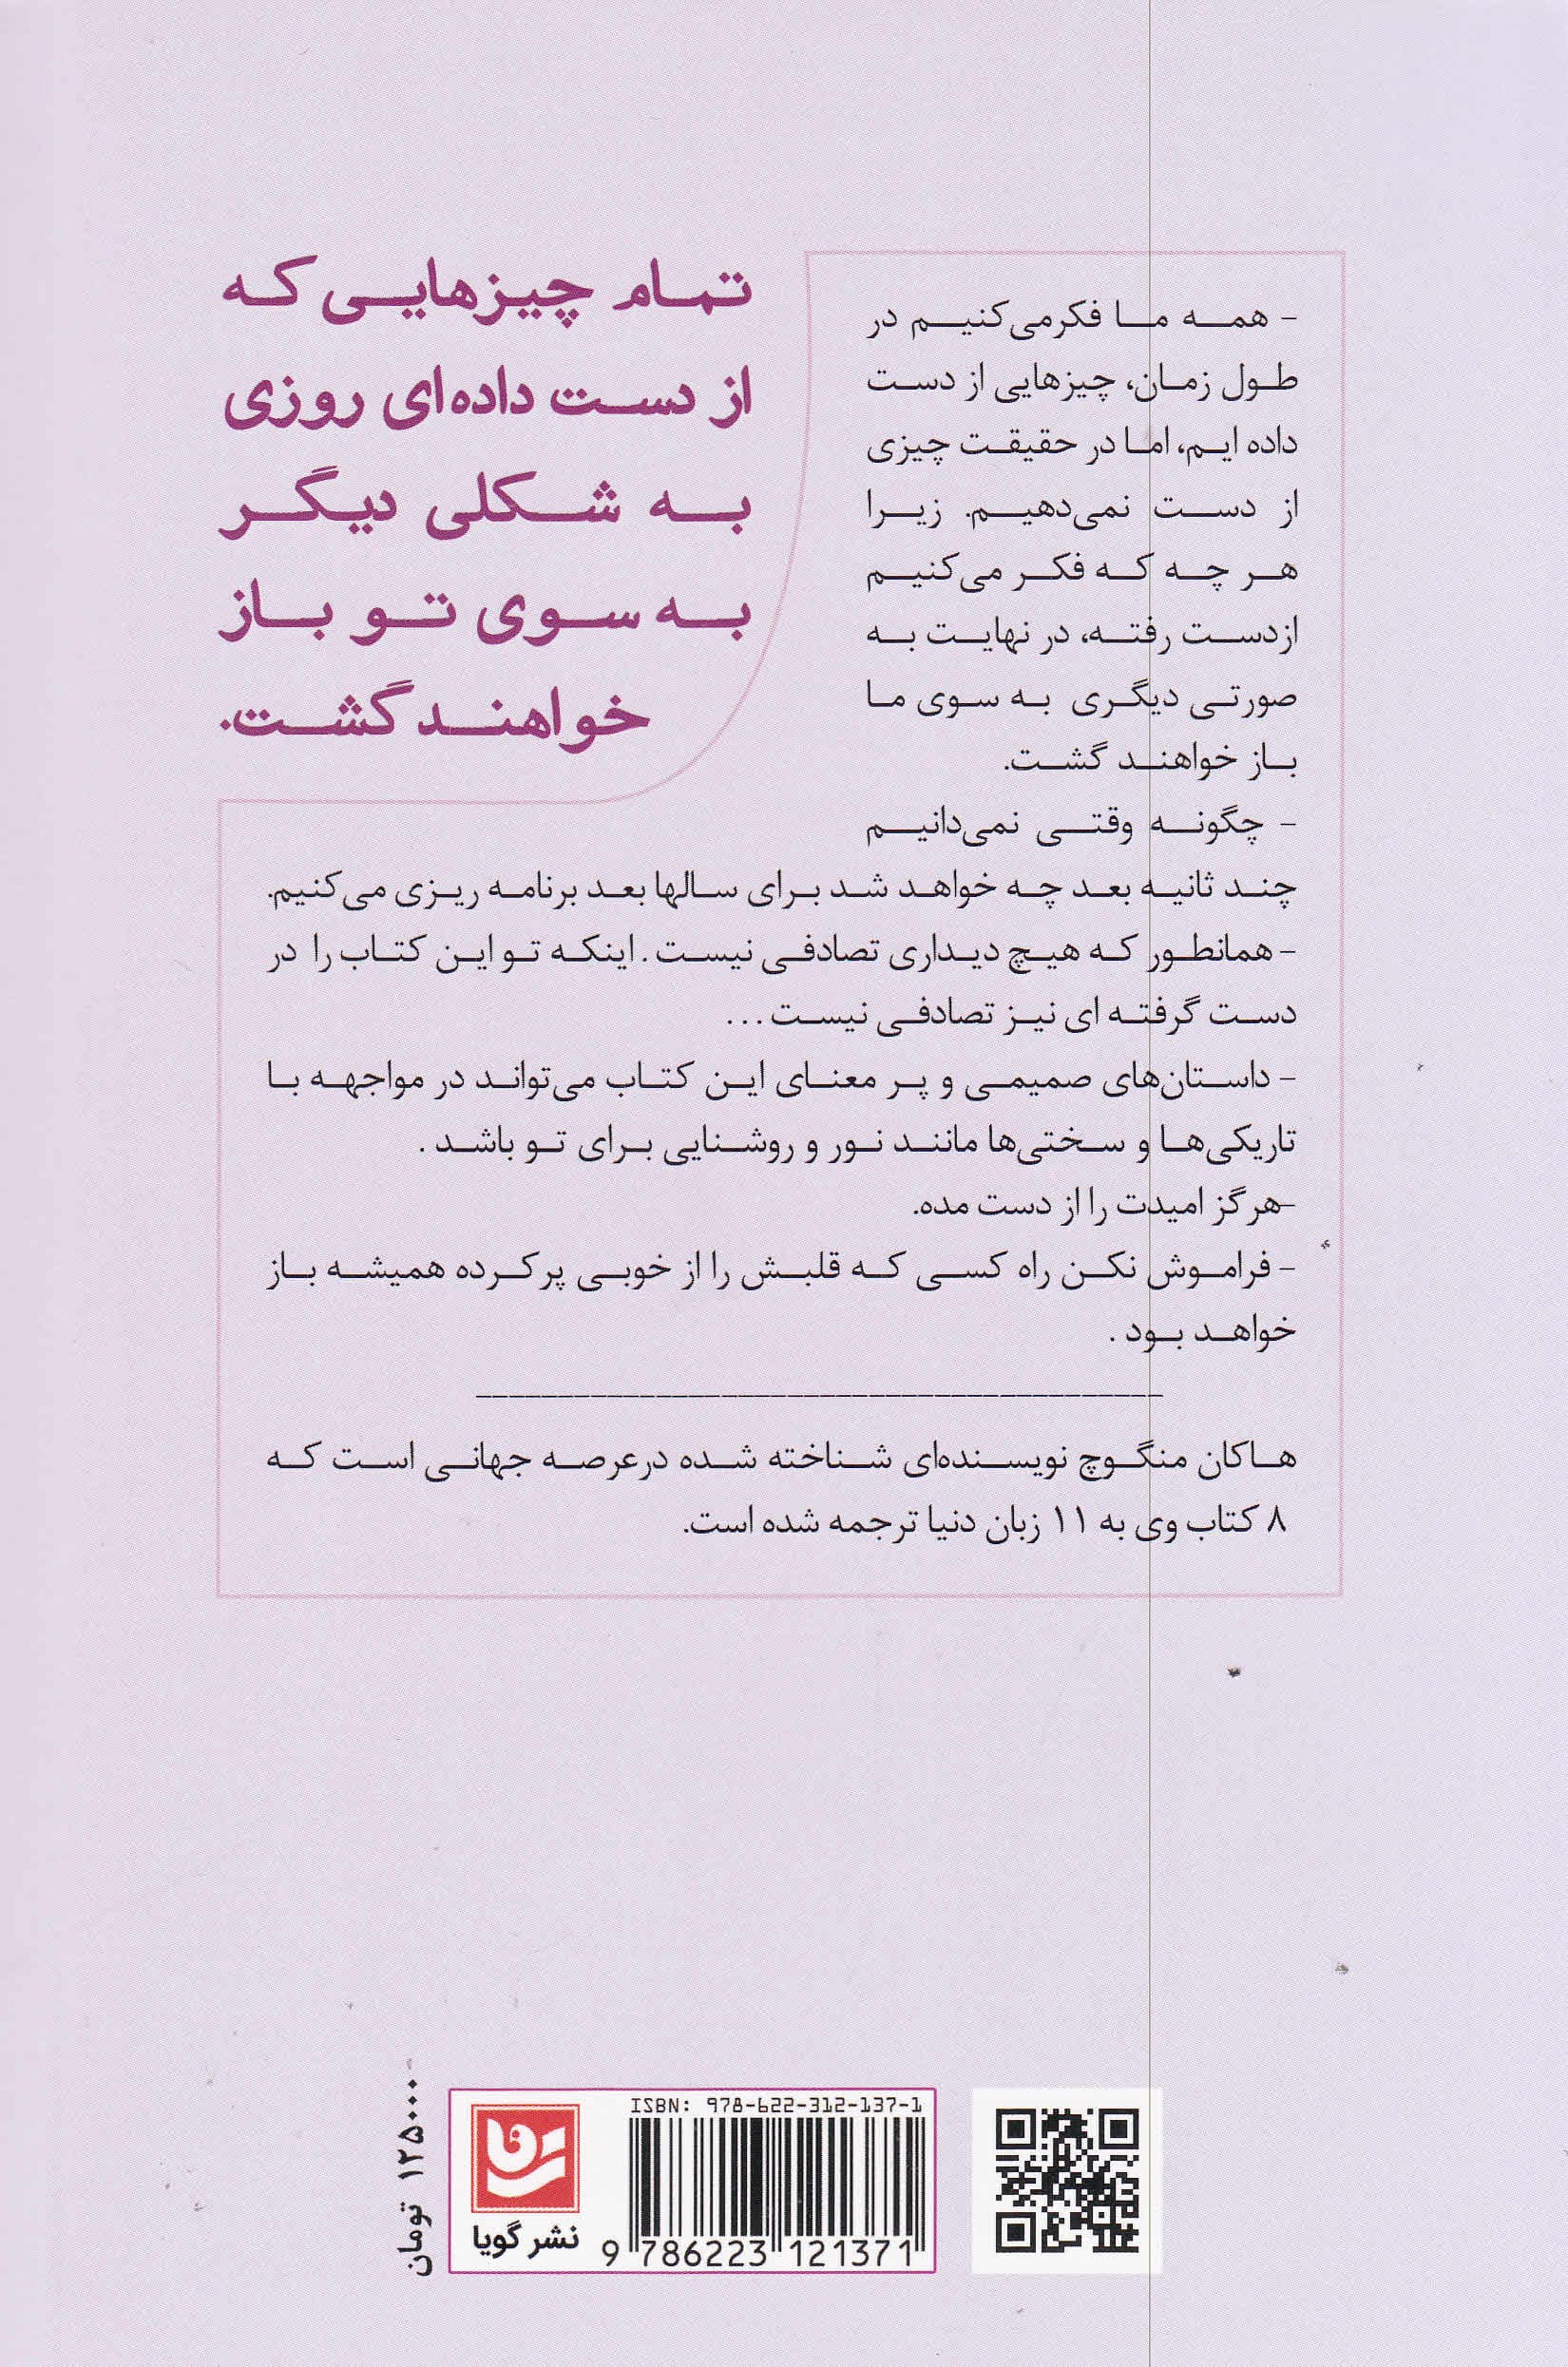 تمام چیزهایی که
از دست داده‌ای روزی
به شکلی دیگر
به سوی تو باز
خواهند گشت.
- همه ما فکرمی‌کنیم در
طول زمان، چیزهایی از دست
داده ایم، اما در حقیقت چیزی
از دست نمی‌دهیم. زیرا
هر چه که فکر می‌کنیم
ازدست رفته، در نهایت به
صورتی دیگری به سوی ما
باز خواهند گشت.
- چگونه وقتی نمی‌دانیم
چند ثانیه بعد چه خواهد شد برای سالها بعد برنامه ریزی می‌کنیم.
- همانطور که هیچ دیداری تصادفی نیست . اینکه تو این کتاب را در
دست گرفته ای نیز تصادفی نیست . . .
- داستان‌های صمیمی و پر معنای این کتاب می‌تواند در مواجهه با
تاریکی‌ها و سختی‌ها مانند نور و روشنایی برای تو باشد .
-هرگز امیدت را از دست مده.
- فراموش نکن راه کسی که قلبش را از خوبی پرکرده همیشه باز
خواهد بود .
هاکان منگوچ نویسنده‌ای شناخته شده درعرصه جهانی است که
۸ کتاب وی به ۱۱ زبان دنیا ترجمه شده است.
۱۲۵۰۰۰ تومان
نشر گویا
ISBN: 978-622-312-137-1
9 786223 121371